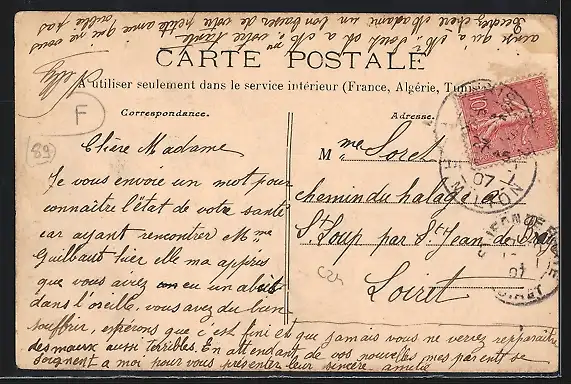 CARTE POSTALE
A utiliser seulement dans le service intérieur (France, Algérie, Tunisie)
Correspondance.
Adresse.
F
Chère Madame
Je vous envoie un mot pour
connaître l'état de votre santé
car ayant rencontrer Mme
Guilbaut hier elle m'a appris
que vous aviez eu un abcès
dans l'oreille, vous avez du bien
souffrir, espérons que c'est fini et que jamais vous ne verrez repparaître
des maux aussi terribles. En attendant de vos nouvelles mes parents se
joignent a moi pour vous présenter leur sincère amitié
ainsi qu'à Mr Soret et à Mr votre
Recevez chère Madame un bon baiser de votre petite amie qui ne vous
oublie pas
Nelly
Mme Soret
chemin du halage à
St Loup par St Jean de Bray
Loiret
C24
10
07
07
LOIRET